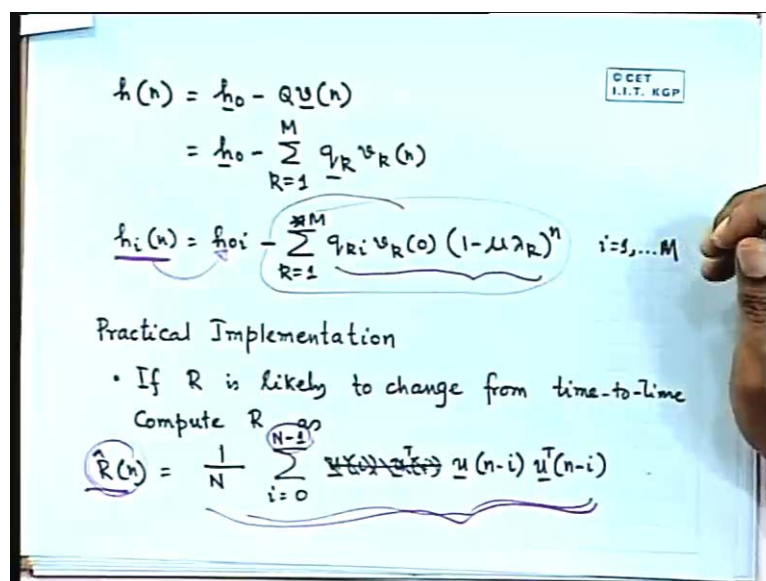 © CET
I.I.T. KGP
h(n) = h0 - Qv(n)
= h0 - Σ_{R=1}^{M} q_R v_R(n)
h_i(n) = h_{0i} - Σ_{R=1}^{M} q_{Ri} v_R(0) (1-μλ_R)^n i=1,...M
Practical Implementation
• If R is likely to change from time-to-time
Compute R as
R̂(n) = 1/N Σ_{i=0}^{N-1} u(n-i) u^T(n-i)